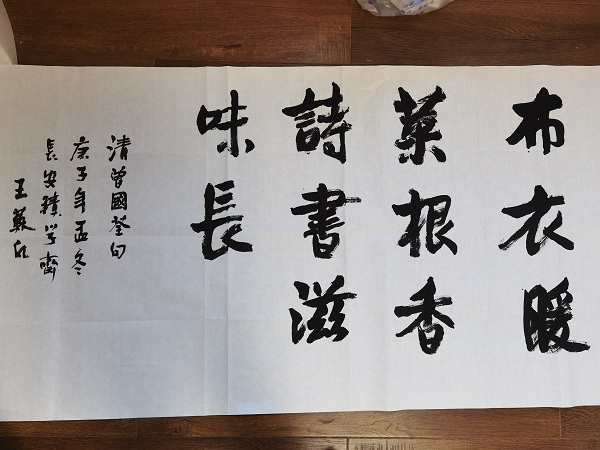 布衣暖
菜根香
詩書滋
味長
清曾國荃句
庚子年孟冬
長安積学齋
王蘇